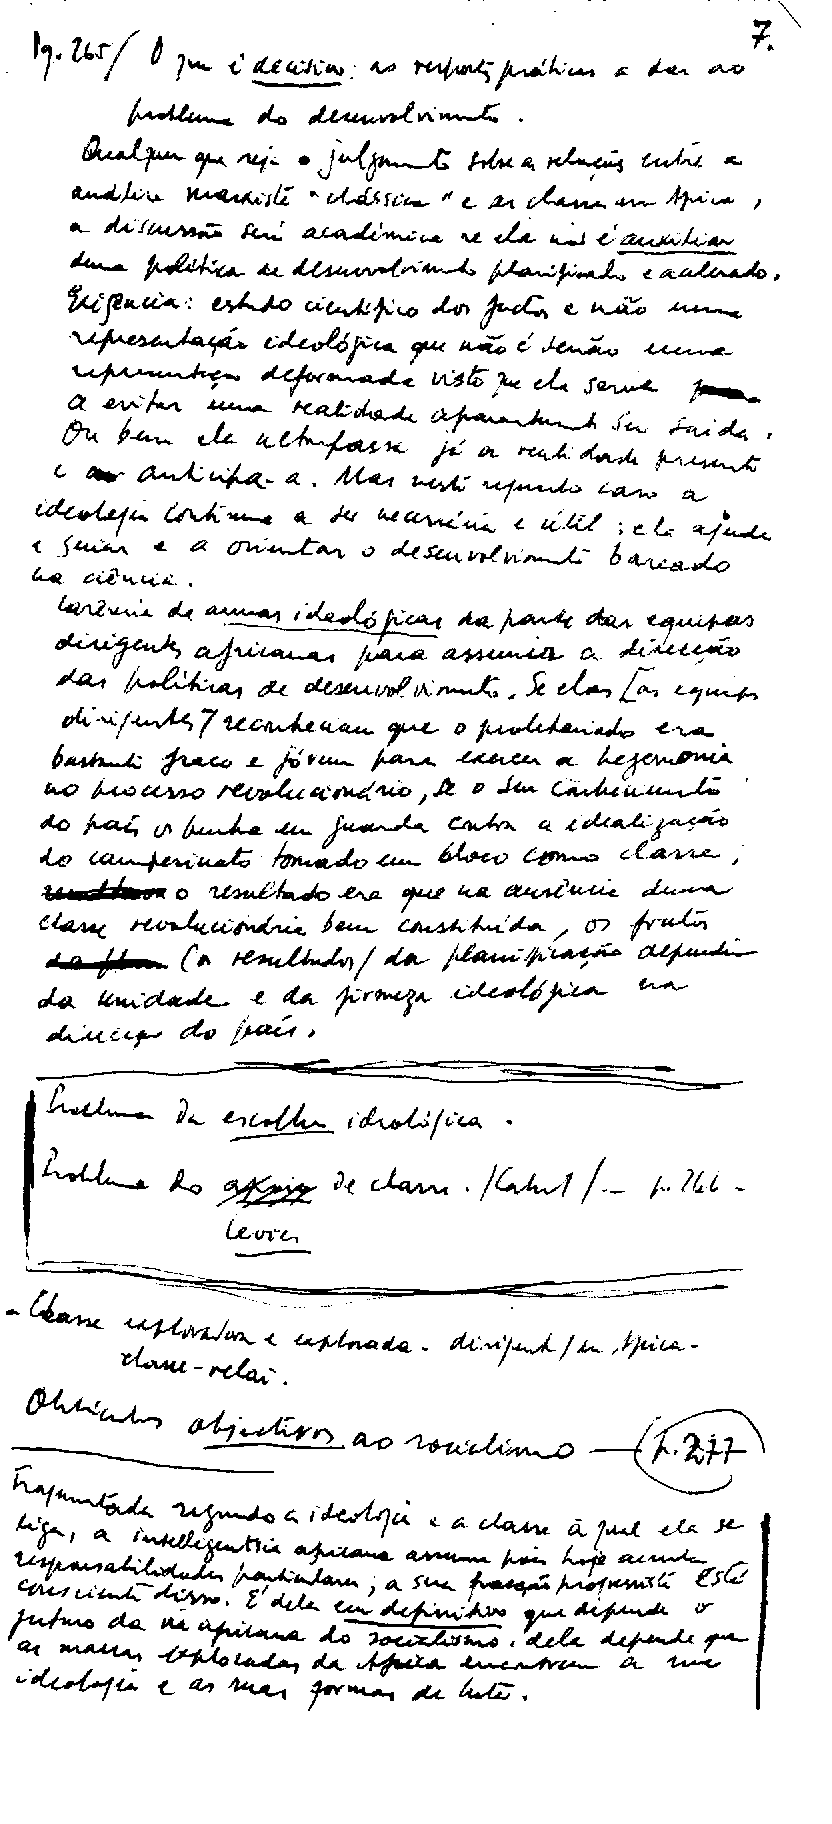 7.
Pg. 265/ O que é decisivo: as respostas práticas a dar ao
problema do desenvolvimento.
Qualquer que seja o julgamento sobre as relações entre a
análise marxista "clássica" e as classes em África,
a discussão será académica se ela não é auxiliar
duma política de desenvolvimento planificado e acelerado.
Exigência: estudo científico dos factos e não uma
representação ideológica que não é senão uma
representação deformada visto que ela serve
a evitar uma realidade aparentemente sem saída.
Ou bem ela ultrapassa já a realidade presente
e antecipa-a. Mas neste segundo caso a
ideologia continua a ser necessária e útil; ela ajuda
a guiar e a orientar o desenvolvimento baseado
na ciência.
Carência de armas ideológicas da parte das equipas
dirigentes africanas para assumir a direcção
das políticas de desenvolvimento. Se elas [as equipas
dirigentes] reconheciam que o proletariado era
bastante fraco e jóvem para exercer a hegemonia
no processo revolucionário, se o seu conhecimento
do país os punha em guarda contra a idealização
do campesinato tomado em bloco como classe,
o resultado era que na ausência duma
classe revolucionária bem constituída, os frutos
(os resultados) da planificação dependiam
da unidade e da firmeza ideológica na
direcção do país.
Problema da escolha ideológica.
Problema do de classe. /Cabral/ - p. 266 -
- Classe exploradora e explorada - dirigente/em África -
classe-relai.
Obstáculos objectivos ao socialismo — p. 277
Fragmentada segundo a ideologia e a classe à qual ela se
liga, a intelligentsia africana assume pois hoje
responsabilidades particulares; a sua fracção progressista está
consciente disso. É dela em definitivo que depende o
futuro da via africana do socialismo. dela depende que
as massas exploradas da África encontrem a sua
ideologia e as suas formas de luta.